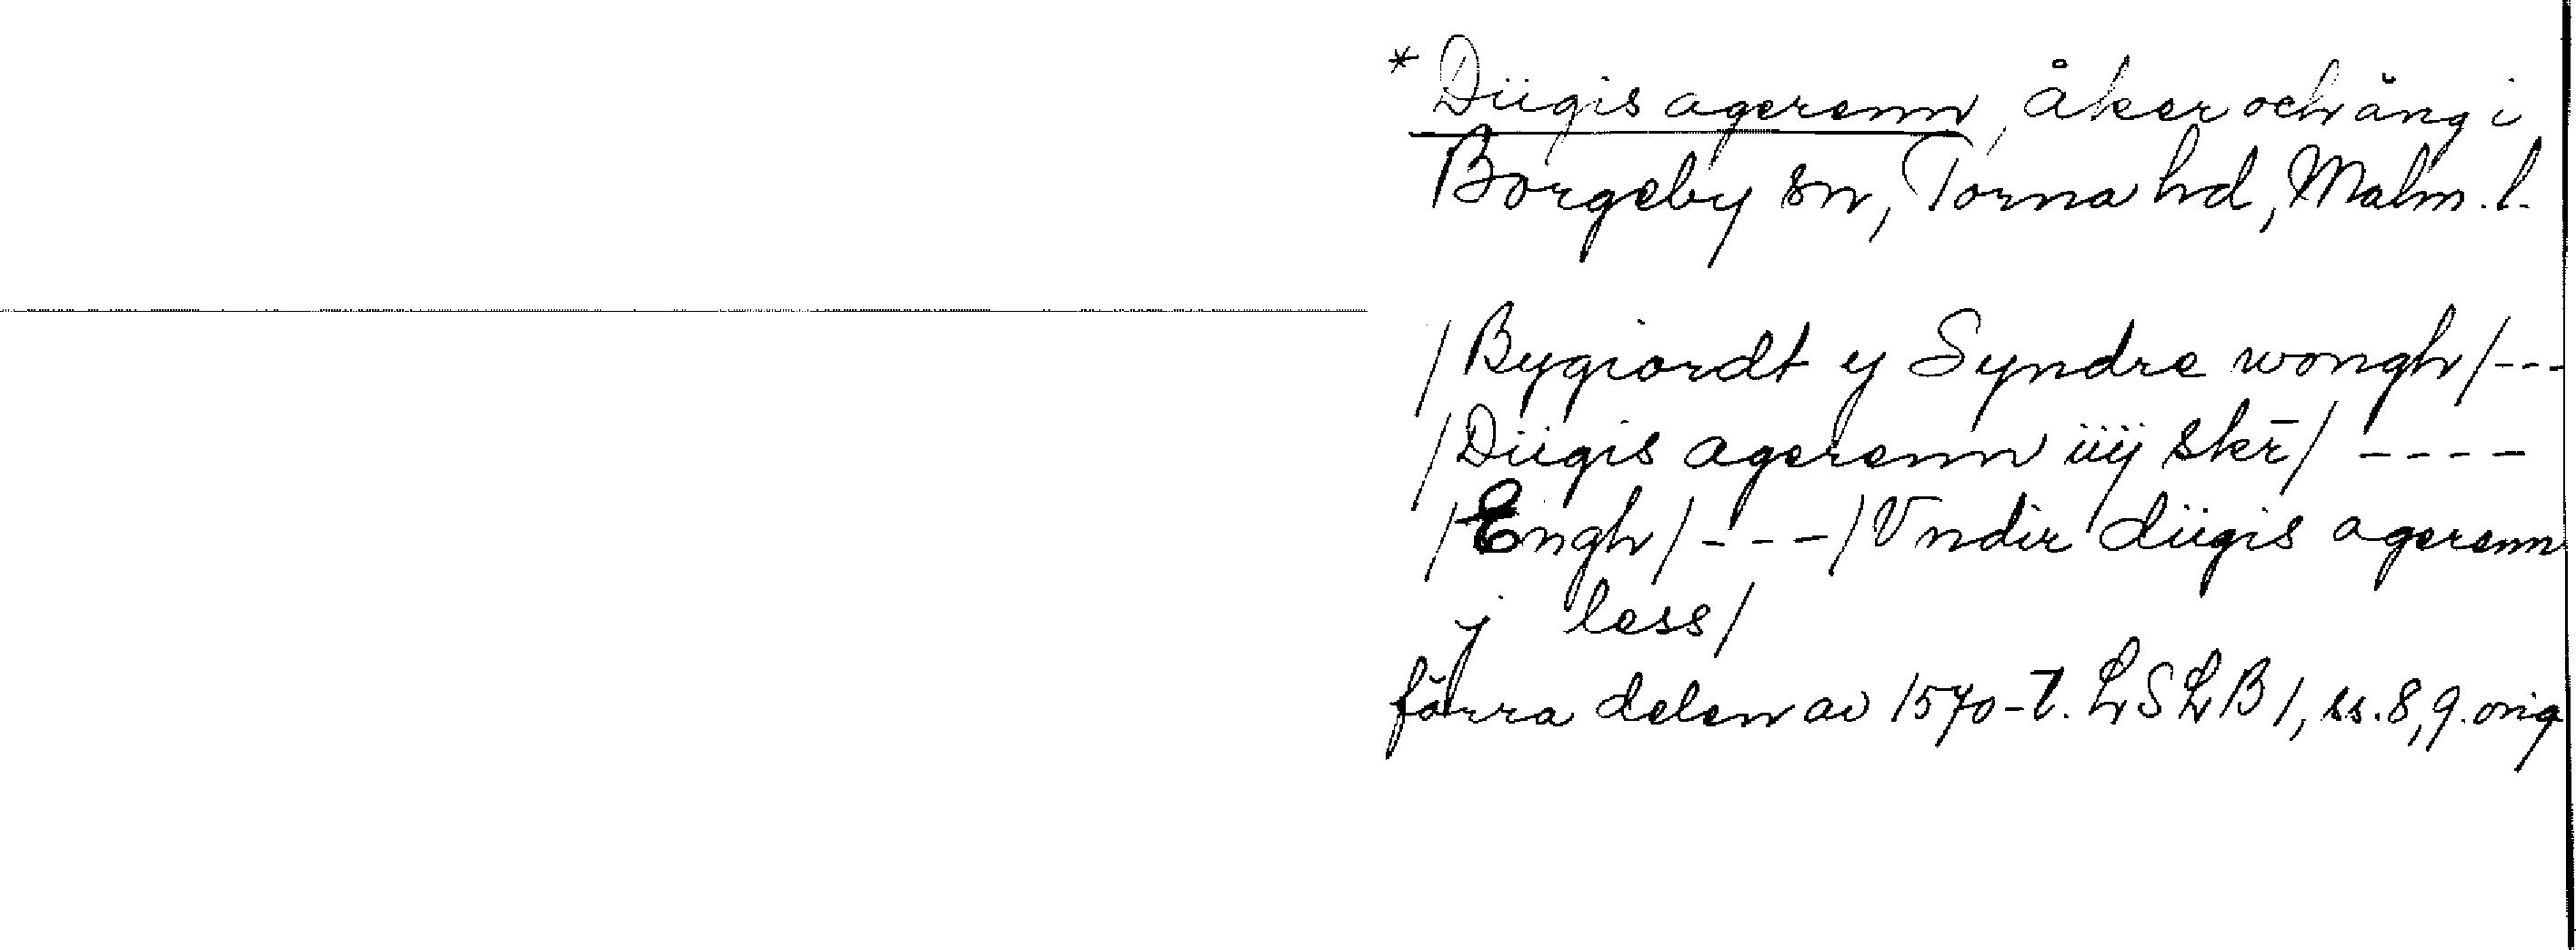 * Diigis agerenn, åker och äng i
Borgeby sn, Torna hd, Malm. l.
/Bygiordt y Syndre wongh/---
/Diigis agerenn iiij skr̄/ ----
/Engh/---/Vndir diigis agerenn
j less/
förra delen av 1570-t. LSLB 1, ss. 8, 9. orig